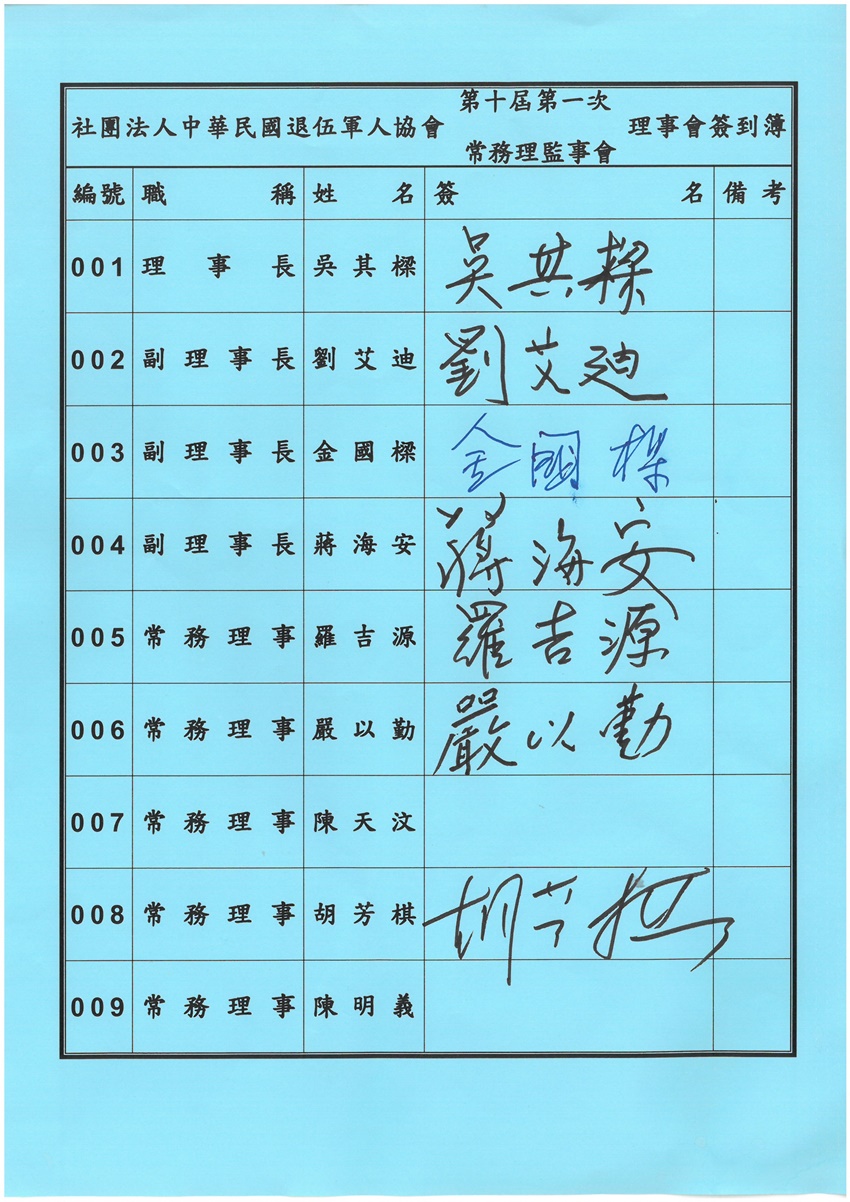 社團法人中華民國退伍軍人協會 第十屆第一次 常務理監事會 理事會簽到簿
編號 職稱 姓名 簽名 備考
001 理事長 吳其樑 吳其樑
002 副理事長 劉艾迪 劉艾迪
003 副理事長 金國樑 金國樑
004 副理事長 蔣海安 蔣海安
005 常務理事 羅吉源 羅吉源
006 常務理事 嚴以勤 嚴以勤
007 常務理事 陳天汶
008 常務理事 胡芳棋 胡芳棋
009 常務理事 陳明義